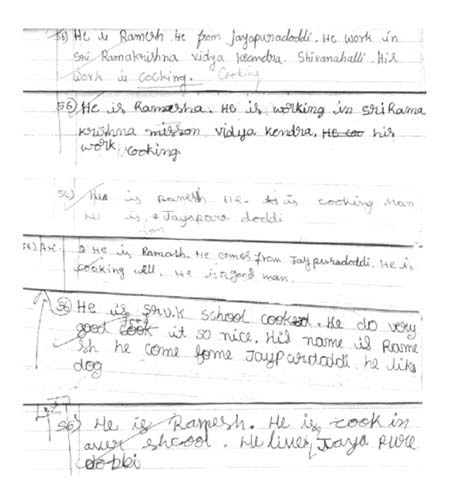 56) He is Ramesh. He from jayapuradoddi. He work in
Sri Ramakrishna vidya keandra. Shivanahalli. His
work is cocking. Cooking
56) He is Ramesha. He is working in Sri Rama
krishna mission vidya kendra. He coo his
work, cooking.
56) His is ramesh He. is cooking man
He is, Jayapara doddi
from
56) A. He is Ramash. He comes from Jaypuradoddi. He is
cooking well. He is a good man.
56) He is S.r.v.k school cooked. He do very
food
good cook it so nice. His name is Rame
sh he come fome Jaypurdoddi he like
dog
56) He is Ramesh. He is cook in
aver shcool. He lives, Jaya pure
dobbi